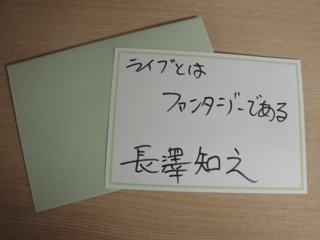 ライブとは
ファンタジーである
長澤知之